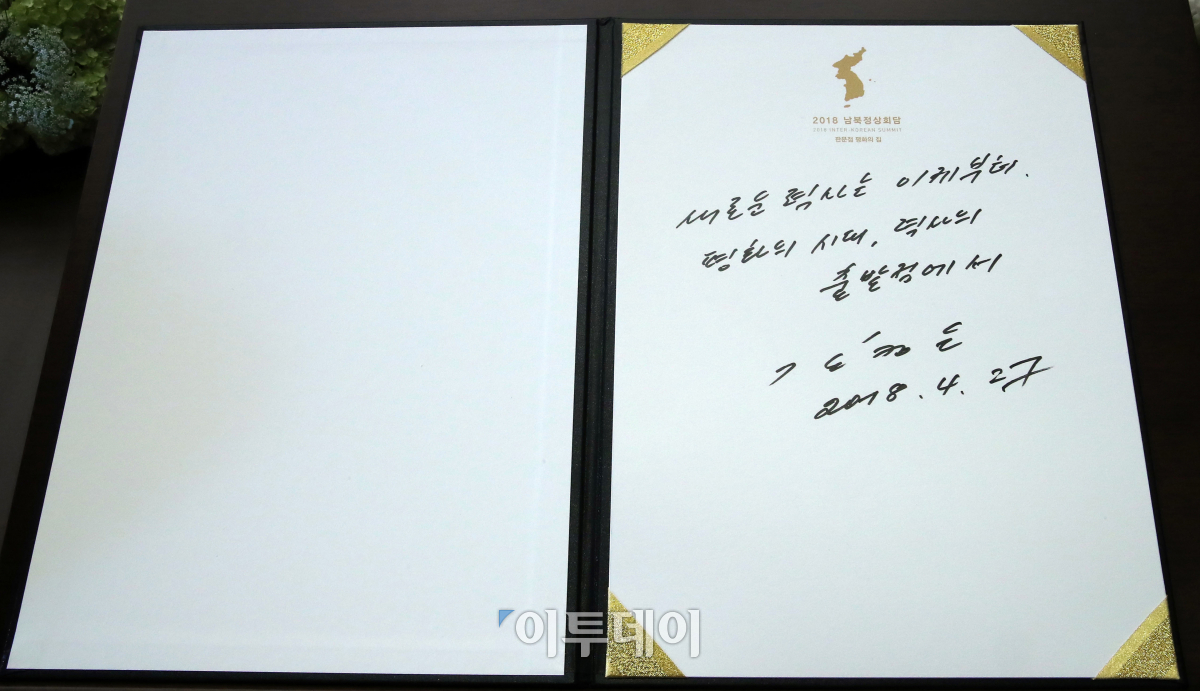 2018 남북정상회담
2018 INTER-KOREAN SUMMIT
판문점 평화의 집
새로운 력사는 이제부터.
평화의 시대, 력사의
출발점에서
김정은
2018. 4. 27
이투데이